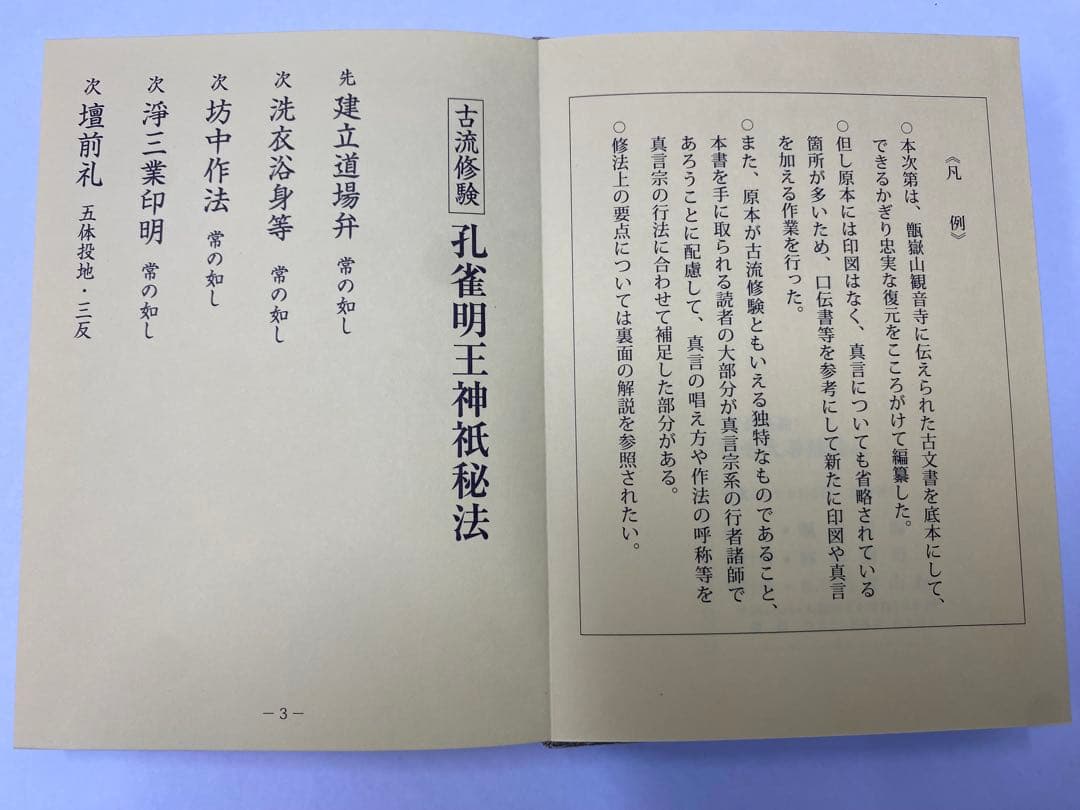 《凡 例》
○本次第は、甑嶽山観音寺に伝えられた古文書を底本にして、
できるかぎり忠実な復元をこころがけて編纂した。
○但し原本には印図はなく、真言についても省略されている
箇所が多いため、口伝書等を参考にして新たに印図や真言
を加える作業を行った。
○また、原本が古流修験ともいえる独特なものであること、
本書を手に取られる読者の大部分が真言宗系の行者諸師で
あろうことに配慮して、真言の唱え方や作法の呼称等を
真言宗の行法に合わせて補足した部分がある。
○修法上の要点については裏面の解説を参照されたい。
古流修験 孔雀明王神祇秘法
先 建立道場弁 常の如し
次 洗衣浴身等 常の如し
次 坊中作法 常の如し
次 淨三業印明 常の如し
次 壇前礼 五体投地・三反
－3－